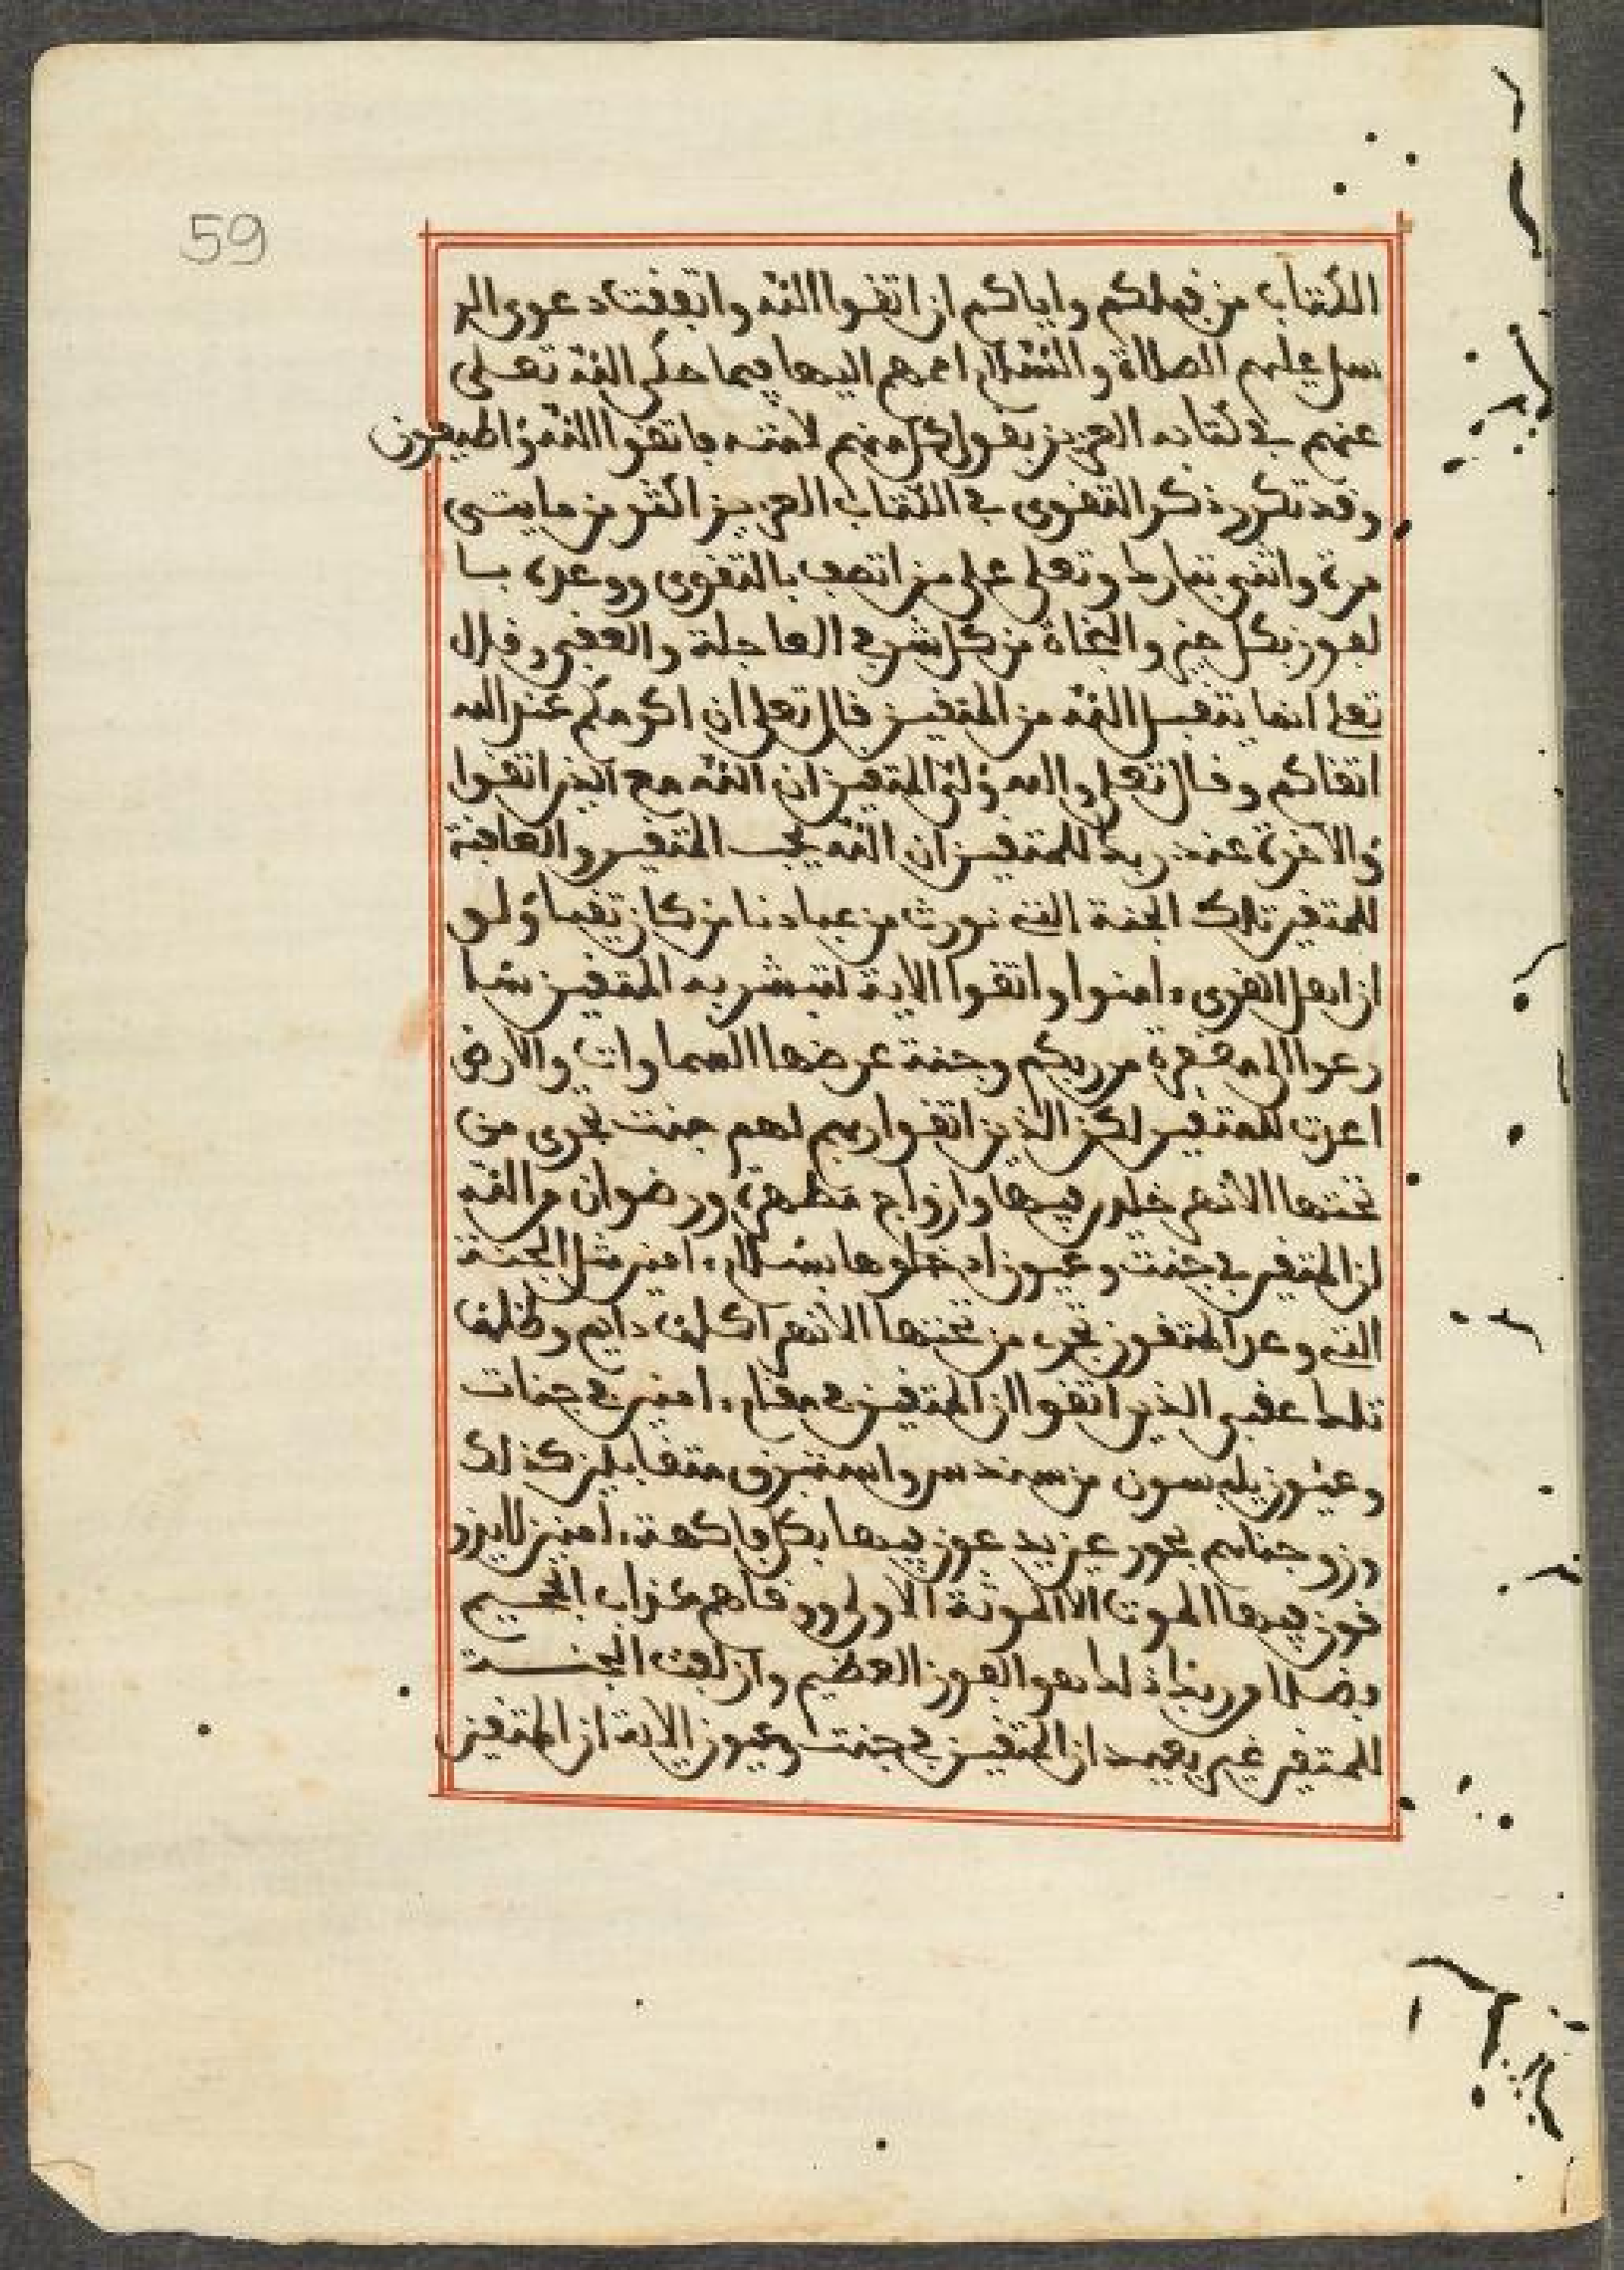 59
الكتاب من قبلكم واياكم ان اتقوا الله واتفقت دعوى الر
سل عليهم الصلاة والسلام اممهم اليها فيما حكى الله تعلى
عنهم في كتابه العزيز بقول كل منهم لامته فاتقوا الله واطيعون
وقد تكرر ذكر التقوى في الكتاب العزيز اكثر من مايتى
مرة واثنى تبارك وتعلى على من اتصف بالتقوى ووعده با
لفوز بكل خير والنجاة من كل شر في العاجلة والعقبى وقال
تعلى انما يتقبل الله من المتقين قال تعلى ان اكرمكم عند الله
اتقاكم وقال تعلى والله ولي المتقين ان الله مع الذين اتقوا
والاخرة عند ربك للمتقين ان الله يحب المتقين والعاقبة
للمتقين تلك الجنة التي نورث من عبادنا من كان تقيا ولو
ان اهل القرى ءامنوا واتقوا الاية لتبشر به المتقين سا
رعوا الى مغفرة من ربكم وجنة عرضها السماوات والارض
اعدت للمتقين لكن الذين اتقوا ربهم لهم جنت تجرى من
تحتها الانهر خلدين فيها وازواج مطهرة ورضوان من الله
ان المتقين في جنت وعيون ادخلوها بسلام ءامنين مثل الجنة
التي وعد المتقون تجرى من تحتها الانهر اكلها دايم وظلها
تلك عقبى الذين اتقوا ان المتقين في مقام ءامين في جنات
وعيون يلبسون من سندس واستبرق متقابلين كذلك
وزوجناهم بحور عين يدعون فيها بكل فاكهة ءامنين لا يذو
قون فيها الموت الا الموتة الاولى ووقاهم عذاب الجحيم
فضلا من ربك ذلك هو الفوز العظيم وازلفت الجنة
للمتقين غير بعيد ان المتقين في جنت وعيون الاية ان المتقين